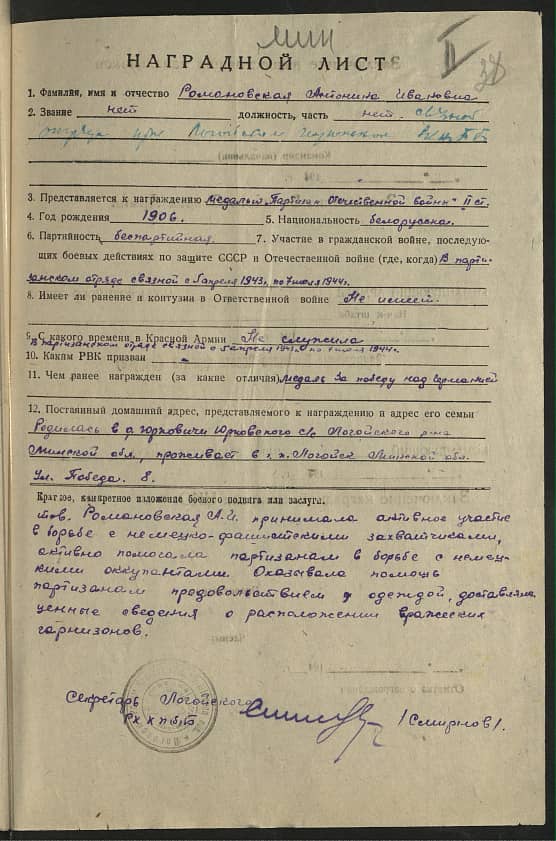 МИН
II
38
НАГРАДНОЙ ЛИСТ
1. Фамилия, имя и отчество Романовская Антонина Ивановна
2. Звание нет должность, часть нет. Связной
отряда
3. Представляется к награждению медалью "Партизан Отечественной войны" II ст.
4. Год рождения 1906. 5. Национальность белорусска.
6. Партийность беспартийная. 7. Участие в гражданской войне, последую-
щих боевых действиях по защите СССР и Отечественной войне (где, когда) В парти-
занском отряде связной с 5 апреля 1943г. по 7 июля 1944г.
8. Имеет ли ранение и контузия в Ответственной войне Не имеет.
9. С какого времени в Красной Армии Не служила
В партизанском отряде связной с 5 апреля 1943г. по 7 июля 1944г.
10. Каким РВК призван -
11. Чем ранее награжден (за какие отличия) медаль За победу над Германией
12. Постаянный домашний адрес, представляемого к награждению и адрес его семьи
Родилась в д. Юрковичи Юрковского с/с Логойского р-на
Минской обл., проживает в г.п. Логойск Минской обл.
Ул. Победа. 8.
Краткое, канкретное изложение боевого подвига или заслуги.
тов. Романовская А.И. принимала активное участие
в борьбе с немецко-фашистскими захватчиками,
активно помогала партизанам в борьбе с немец-
кими оккупантами. Оказывала помощь
партизанам продовольствием и одеждой, доставляла
ценные сведения о расположении вражеских
гарнизонов.
Секретарь Логойского
РК КПбБ /Смирнов/.